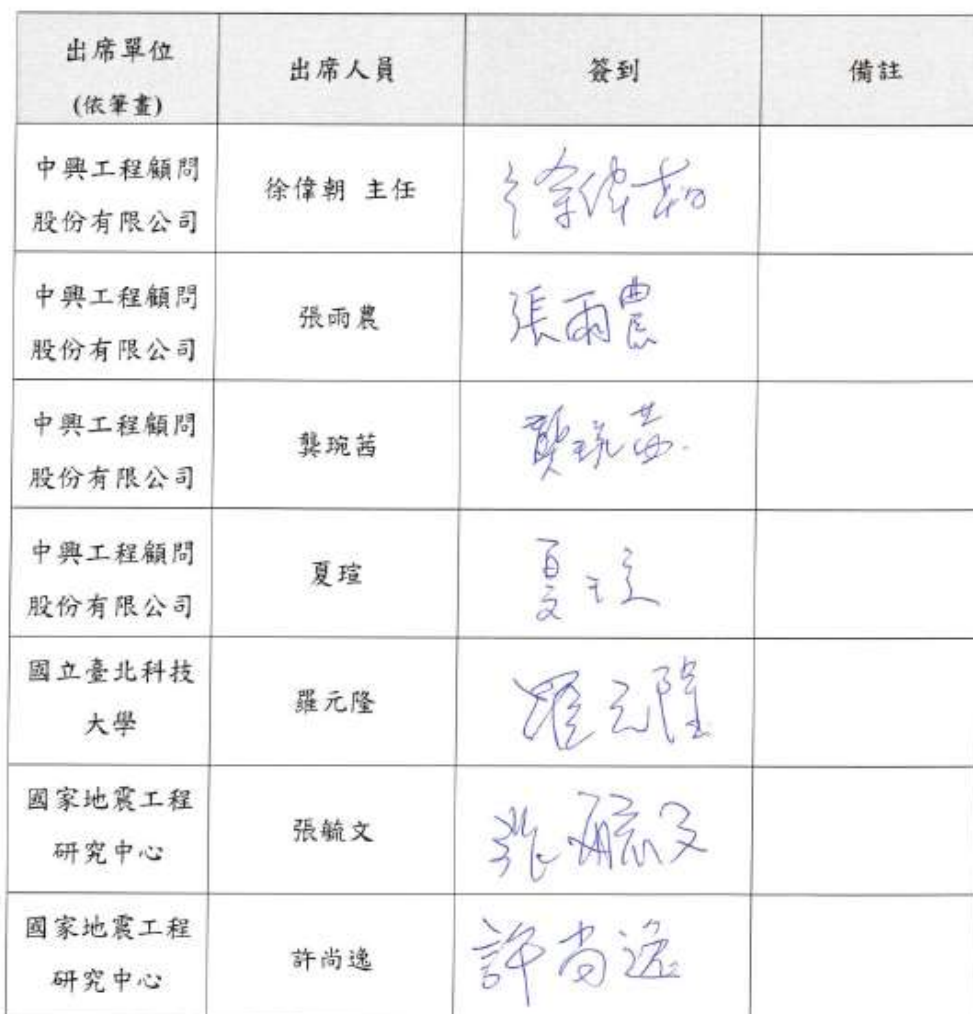 出席單位
(依筆畫)
出席人員
簽到
備註
中興工程顧問
股份有限公司
徐偉朝 主任
徐偉朝
中興工程顧問
股份有限公司
張雨農
張雨農
中興工程顧問
股份有限公司
龔琬茜
龔琬茜
中興工程顧問
股份有限公司
夏瑄
夏瑄
國立臺北科技
大學
羅元隆
羅元隆
國家地震工程
研究中心
張毓文
張毓文
國家地震工程
研究中心
許尚逸
許尚逸